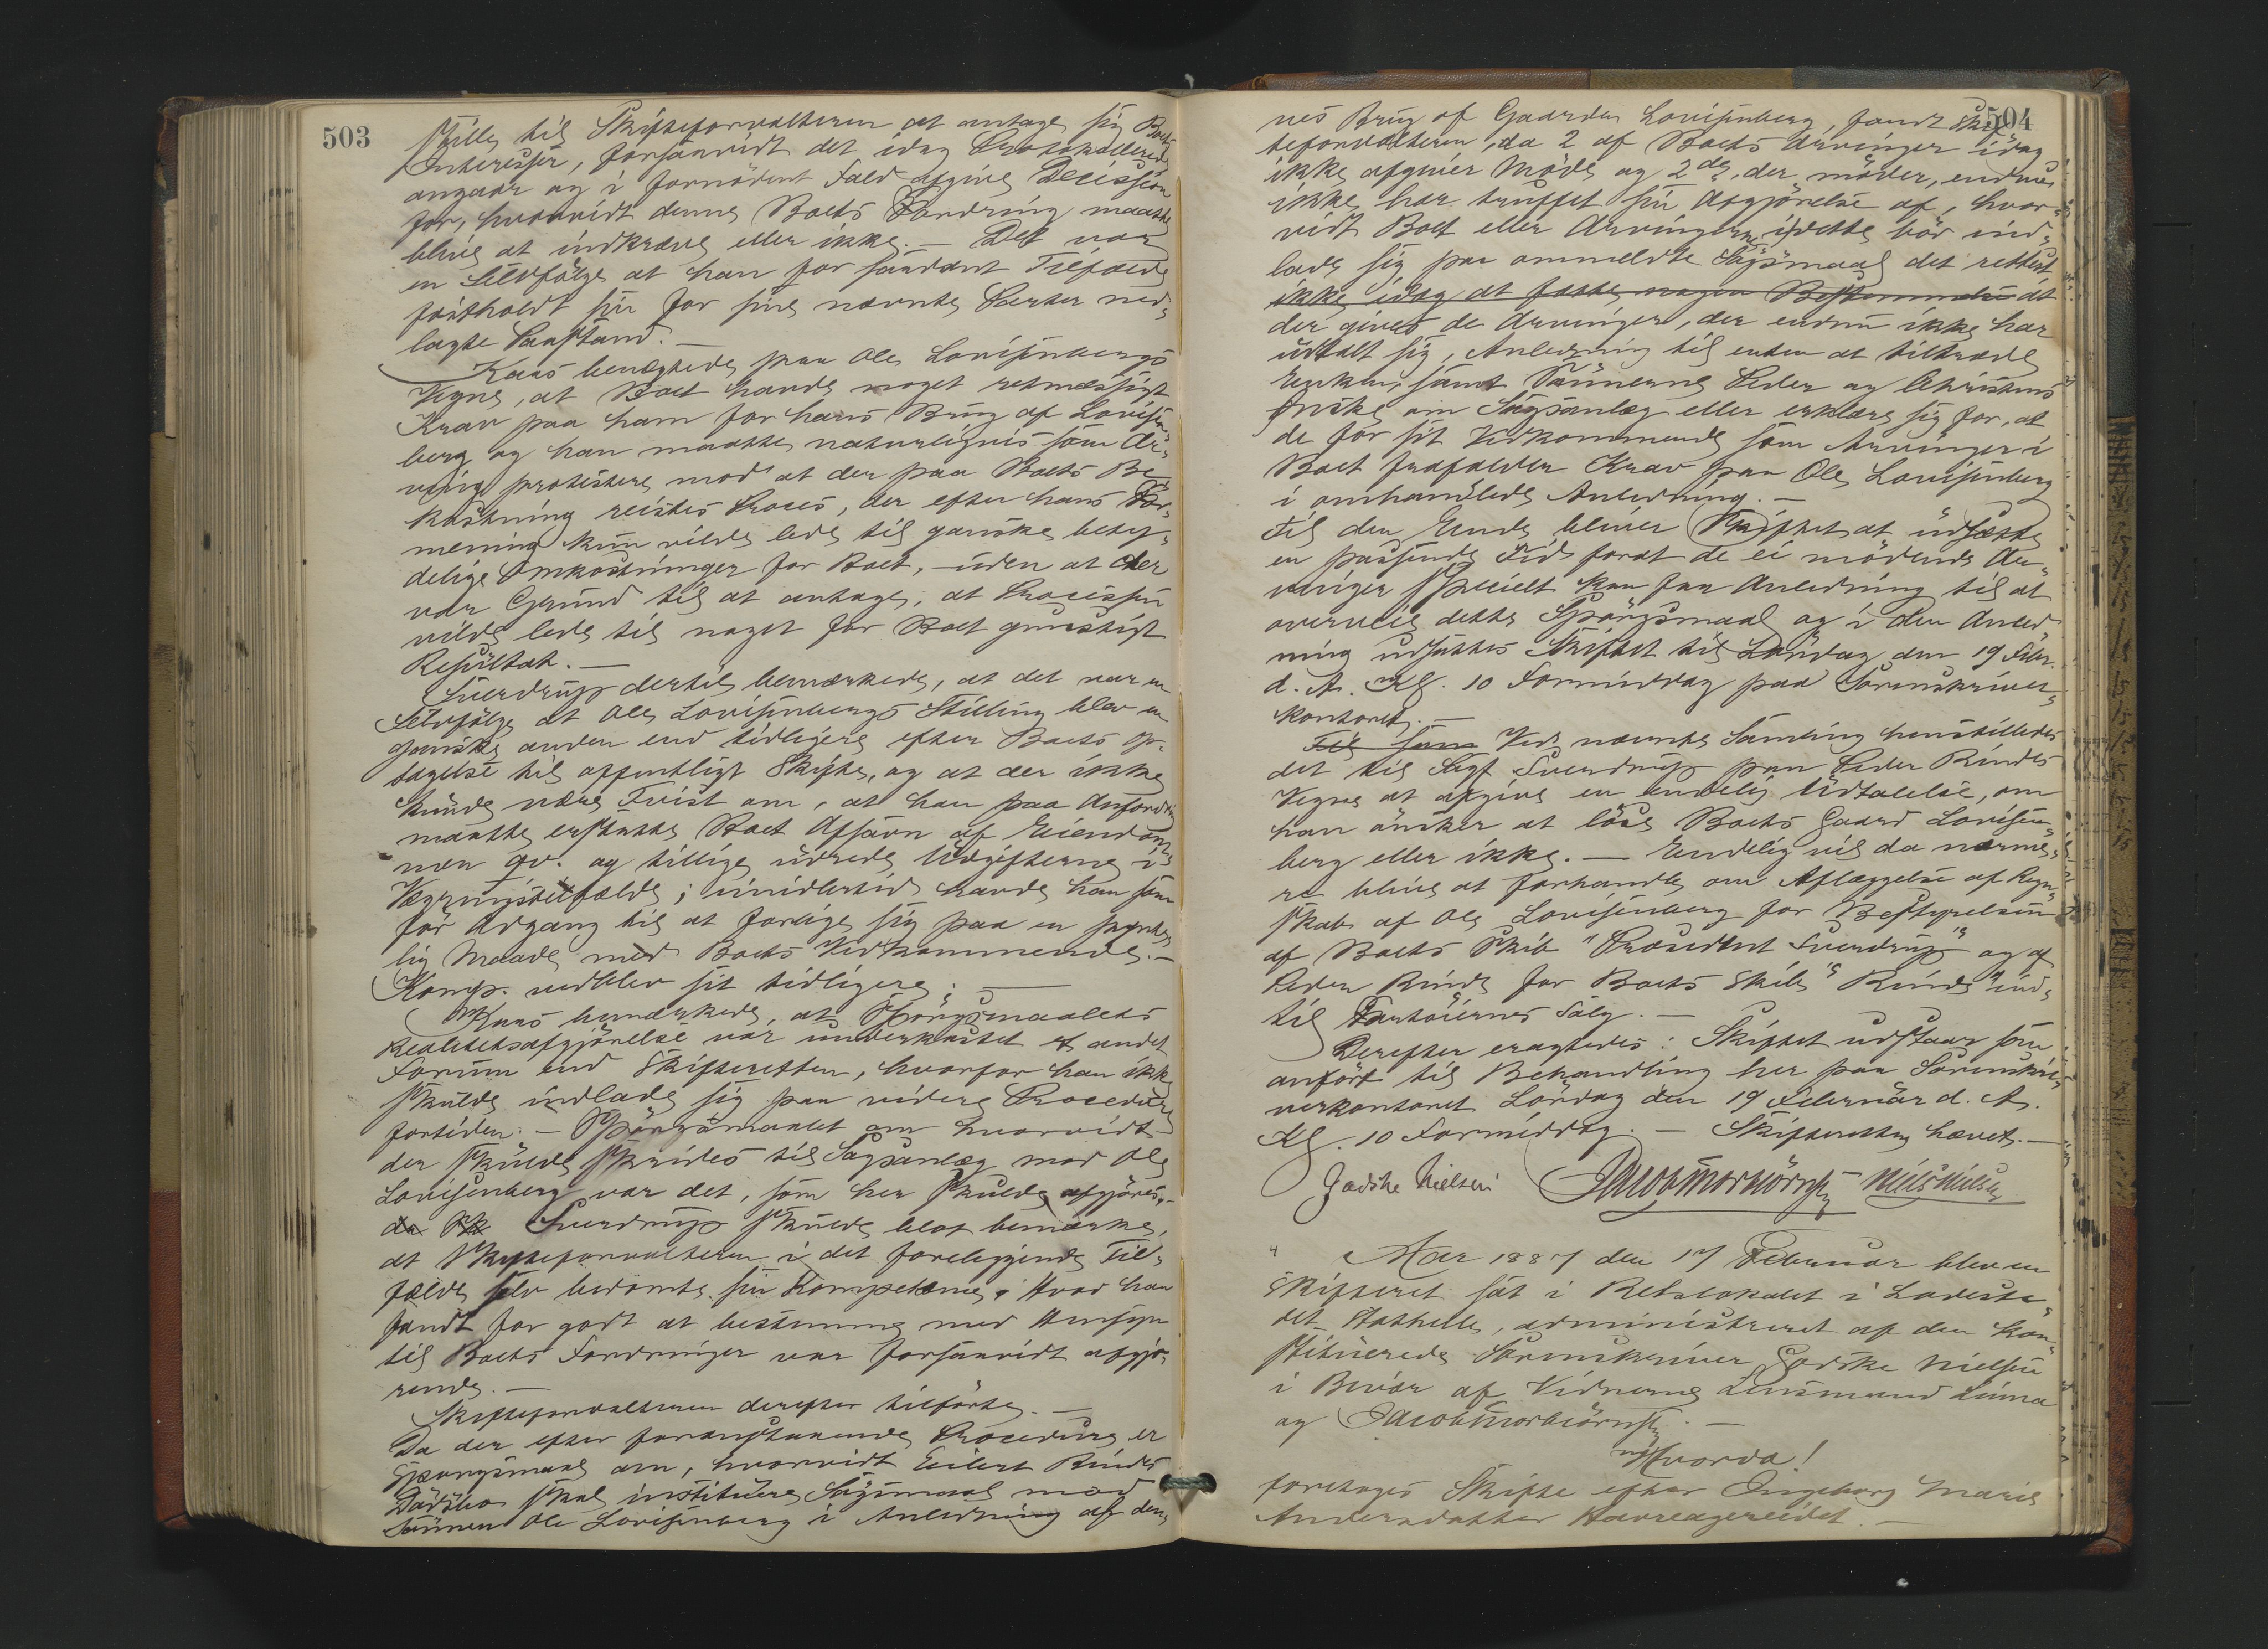 503
stille til Skifteforvalteren at antage sig Boets
Interesser, forsaavidt det idag Protokollerede
angaar og i fornödent Fald afgive Decission
for, hvorvidt denne Boets Fordring maatte
blive at indkræve eller ikke. — Det var
en Selvfölge at han for saadant Tilfælde
fastholdt sin for sine nævnte Parter ned-
lagte Paastand. —
Kaas benægtede paa Ole Lovisenbergs
Vegne, at Boet havde noget retmæssigt
Krav paa ham for hans Brug af Lovisen-
berg og han maatte naturligvis som Ar-
ving protestere mod at der paa Boets Be-
kostning reistes Proces, der efter hans For-
mening kun vilde lede til ganske bety-
delige Omkostninger for Boet, — uden at der
var Grund til at antage, at Processen
vilde lede til noget for Boet gunstigt
Resultat. —
Sverdrup dertil bemærkede, at det var en
Selvfölge at Ole Lovisenbergs Stilling blev en
ganske anden end tidligere efter Boets Op-
tagelse til offentligt Skifte, og at der ikke
kunde være Tvist om, at han paa Anfordring
maatte erstatte Boet Afsavn af Eiendom-
men qv. og tillige udrede Udgifterne i
Vægringstilfælde; imidlertid havde han som
för Adgang til at forlige sig paa en
lig Maade med Boets Vedkommende. —
Komp. vedblev sit tidligere. —
Kaas bemærkede, at Spörgsmaalets
Realitetsafgjörelse var underkastet et andet
Forum end Skifteretten, hvorfor han ikke
skulde indlade sig paa videre Procedure
fortiden. — Spörgsmaalet om hvorvidt
der skulde skrides til Sagsanlæg mod Ole
Lovisenberg var det, som her skulde afgjöres. —
Sverdrup skulde blot bemærke,
at Skifteforvalteren i det foreliggende Til-
fælde selv bedömte sin Kompetence. Hvad han
fandt for godt at bestemme med Hensyn
til Boets Fordringer var forsaavidt afgjö-
rende. —
Skifteforvalteren derefter tilförte. —
Da der efter foranstaaende Procedure er
Spörgsmaal om, hvorvidt Eilert Rinds
Dödsbo skal instituere Sögsmaal mod
Sönnen Ole Lovisenberg i Anledning af den-
504
nes Brug af Gaarden Lovisenberg, fandt Skif-
teforvalteren, da 2 af Boets Arvinger idag
ikke afgiver Möde og 2de, der möder, endnu
ikke har truffet sin Afgjörelse af, hvor-
vidt Boet eller Arvingerne i dette bör ind-
lade sig paa ommeldte Sögsmaal det rettest
ikke idag at fatte nogen Bestemmelse at
der gives de Arvinger, der endnu ikke har
udtalt sig, Anledning til enten at tiltræde
Enken, samt Sönnerne Peder og Christens
Önske om Sagsanlæg eller erklære sig for, at
de for sit Vedkommende som Arvinger i
Boet frafalder Krav paa Ole Lovisenberg
i omhandlede Anledning. —
Til den Ende bliver Skiftet at udsætte
en passende Tid forat de ei mödende Ar-
vinger specielt kan faa Anledning til at
overveie dette Spörgsmaal og i den Anled-
ning udsættes Skiftet til Lördag den 19 Febr.
d. A. Kl. 10 Formiddag paa Sorenskriver-
kontoret. —
Til som Ved nævnte Samling henstilledes
det til Sagf. Sverdrup paa Peder Rindes
Vegne at afgive en endelig Udtalelse, om
han önsker at löse Boets Gaard Lovisen-
berg eller ikke. — Endelig vil da nærme-
re blive at forhandle om Aflæggelse af Regn-
skab af Ole Lovisenberg for Bestyrelsen
af Boets Skib "President Sverdrup" og af
Peder Rinde for Boets Skib "Rinde" ind-
til Fartöiernes Salg. —
Derefter eragtedes: Skiftet udstaar som
anfört til Behandling her paa Sorenskri-
verkontoret Lördag den 19 Februar d. A.
Kl. 10 Formiddag. — Skifteretten hævet. —
Godske Nielsen Jacob Thorbiörnsen Niels Nielsen
Aar 1887 den 17 Februar blev en
Skifteret sat i Retslokalet i Ladeste-
det Stathelle, administreret af den kon-
stituerede Sorenskriver Godske Nielsen
i Bivær af Vidnerne Lensmand Linna
og Jacob Thorbiörnsen. —
Hvorda!
foretoges Skifte efter Ingeborg Marie
Andersdatter